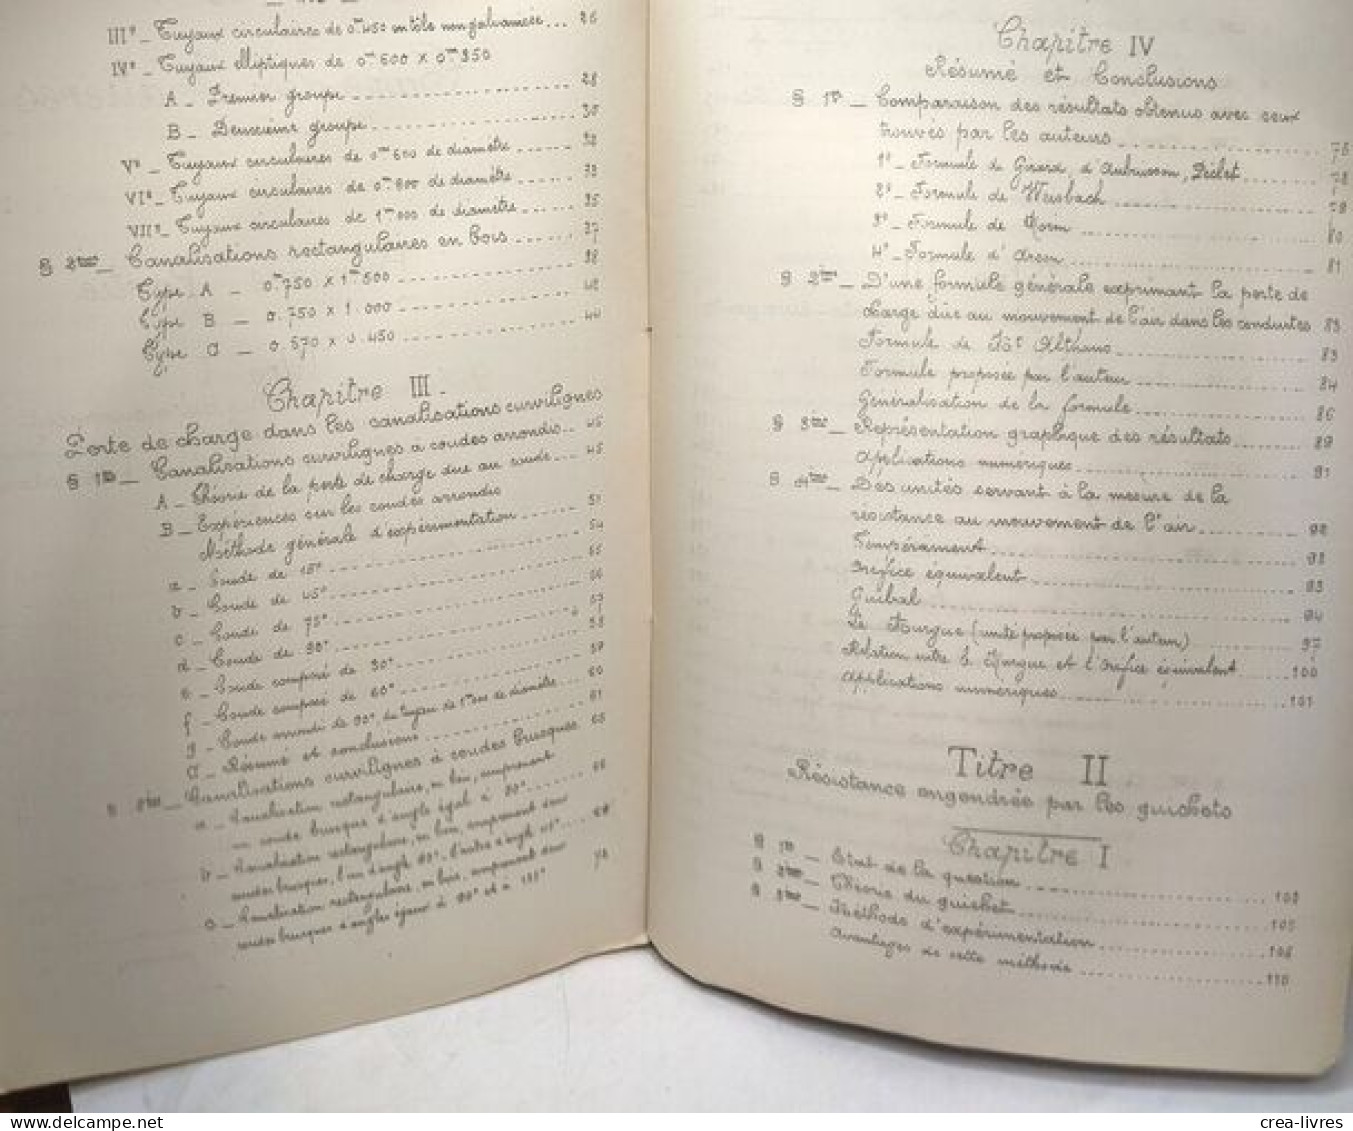 III° _ Tuyaux circulaires de 0m450 en tôle non galvanisée ... 26
IV° _ Tuyaux elliptiques de 0m600 x 0m850
A _ Premier groupe 28
B _ Deuxième groupe 30
V° _ Tuyaux circulaires de 0m600 de diamètre 32
VI° _ Tuyaux circulaires de 0m800 de diamètre 33
VII° _ Tuyaux circulaires de 1m000 de diamètre 35
§ 2ème _ Canalisations rectangulaires en bois 37
Type A _ 0m750 x 1m500 38
Type B _ 0.750 x 1.000 42
Type C _ 0.570 x 0.450 44
Chapitre III _
Perte de charge dans les canalisations curvilignes
§ 1er _ Canalisations curvilignes à coudes arrondis 45
A _ Théorie de la perte de charge due au coude 45
B _ Expériences sur les coudes arrondis
Méthode générale d'expérimentation 51
a _ Coude de 15° 54
b _ Coude de 45° 55
c _ Coude de 75° 56
d _ Coude de 90° 57
e _ Coude composé de 30° 58
f _ Coude composé de 60° 59
g _ Coude arrondi de 90°, du tuyau de 1m000 de diamètre 60
C _ Résumé et conclusions 61
§ 2ème _ Canalisations curvilignes à coudes brusques 65
a _ Canalisation rectangulaire, en bois, comprenant
un coude brusque d'angle égal à 90° 66
b _ Canalisation rectangulaire, en bois, comprenant deux
coudes brusques, l'un d'angle 90°, l'autre d'angle 45° 69
c _ Canalisation rectangulaire, en bois, comprenant deux
coudes brusques d'angles égaux à 90° et à 135° 72
Chapitre IV
Résumé et Conclusions
§ 1er _ Comparaison des résultats obtenus avec ceux
trouvés par les auteurs 75
1° _ Formule de Girard, d'Aubuisson, Péclet 78
2° _ Formule de Weisbach 79
3° _ Formule de Morin 80
4° _ Formule d'Arson 81
§ 2ème _ D'une formule générale exprimant la perte de
charge due au mouvement de l'air dans les conduites 83
Formule de Althans 83
Formule proposée par l'auteur 84
Généralisation de la formule 86
§ 3ème _ Représentation graphique des résultats 89
Applications numériques 91
§ 4ème _ Des unités servant à la mesure de la
résistance au mouvement de l'air 92
Tempérament 92
Orifice équivalent 93
Guibal 94
Le Murgue (unité proposée par l'auteur) 97
Relation entre le Murgue et l'Orifice équivalent 100
Applications numériques 101
Titre II
Résistance engendrée par les guichets
Chapitre I
§ 1er _ Etat de la question 103
§ 2ème _ Théorie du guichet 105
§ 3ème _ Méthode d'expérimentation 106
Avantages de cette méthode 110
crea-livres